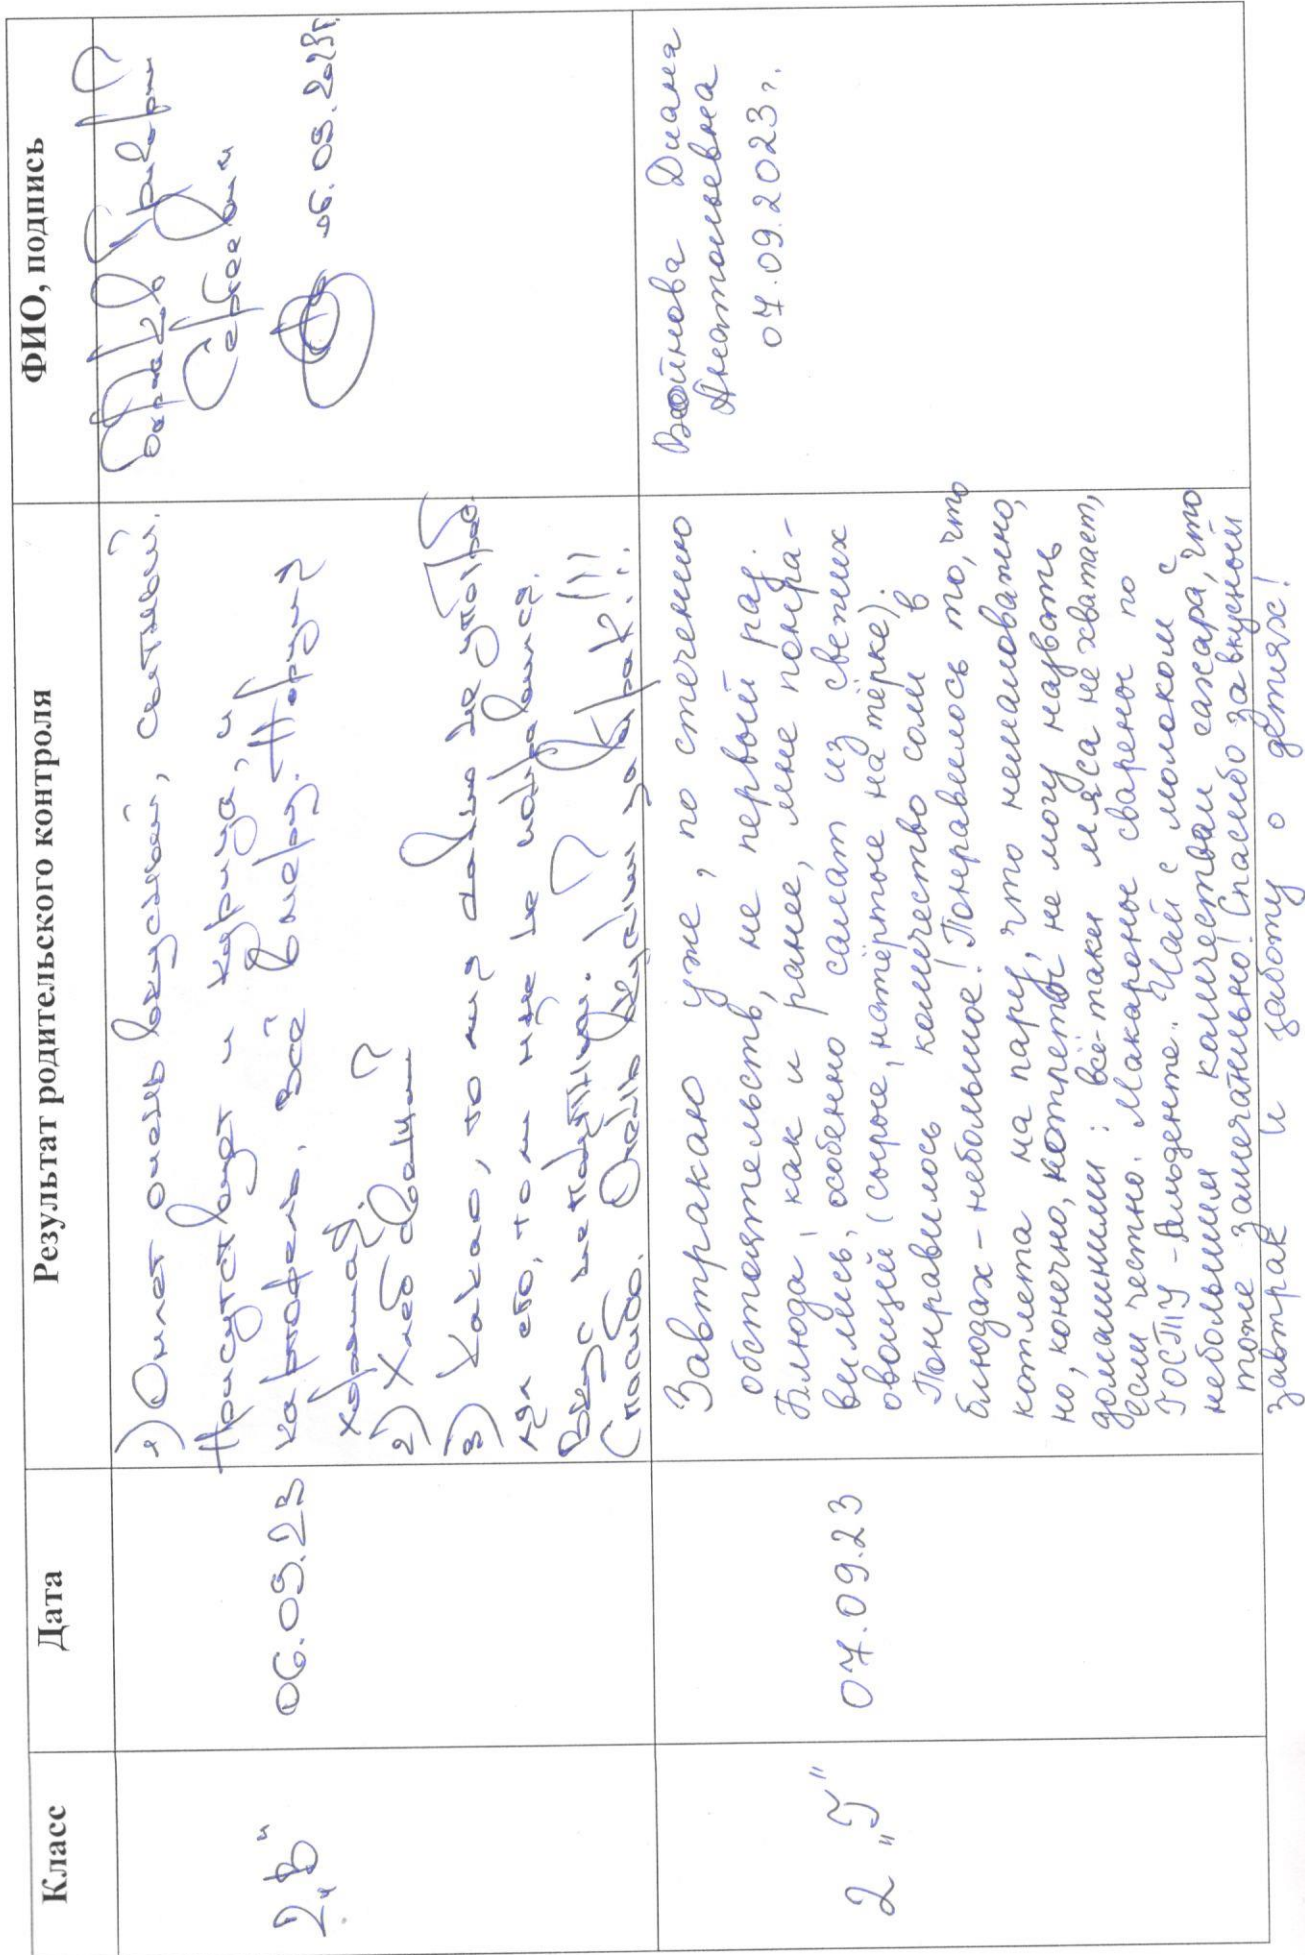 Класс
Дата
Результат родительского контроля
ФИО, подпись
2 „В"
06.09.23
1) Омлет очень вкусный, сытный.
Присутствует и курица, и
картофель. Всё в меру. Порция
хорошая.
2) Хлеб свежий
3) Какао, то мы давно не употреб
ляли его, то и нам не понравился.
Вкус не понятный.
Спасибо. Очень вкусный завтрак!!!
Григорий
Сергеевич
06.09.2023г.
2 „Г"
07.09.23
Завтракаю уже, по стечению
обстоятельств, не первый раз.
Блюда, как и ранее, мне понра-
вились, особенно салат из свежих
овощей (сырые, натёртые на тёрке).
Понравилось количество соли в
блюдах - небольшое! Понравилось то, что
котлета на пару, что немаловажно,
но, конечно, котлеты не могу назвать
домашними: всё-таки мяса не хватает,
если честно. Макароны сварены по
ГОСТу - Альденте. Чай с молоком с
небольшим количеством сахара, что
тоже замечательно! Спасибо за вкусный
завтрак и заботу о детях!
Войнова Диана
Анатольевна
07.09.2023г.